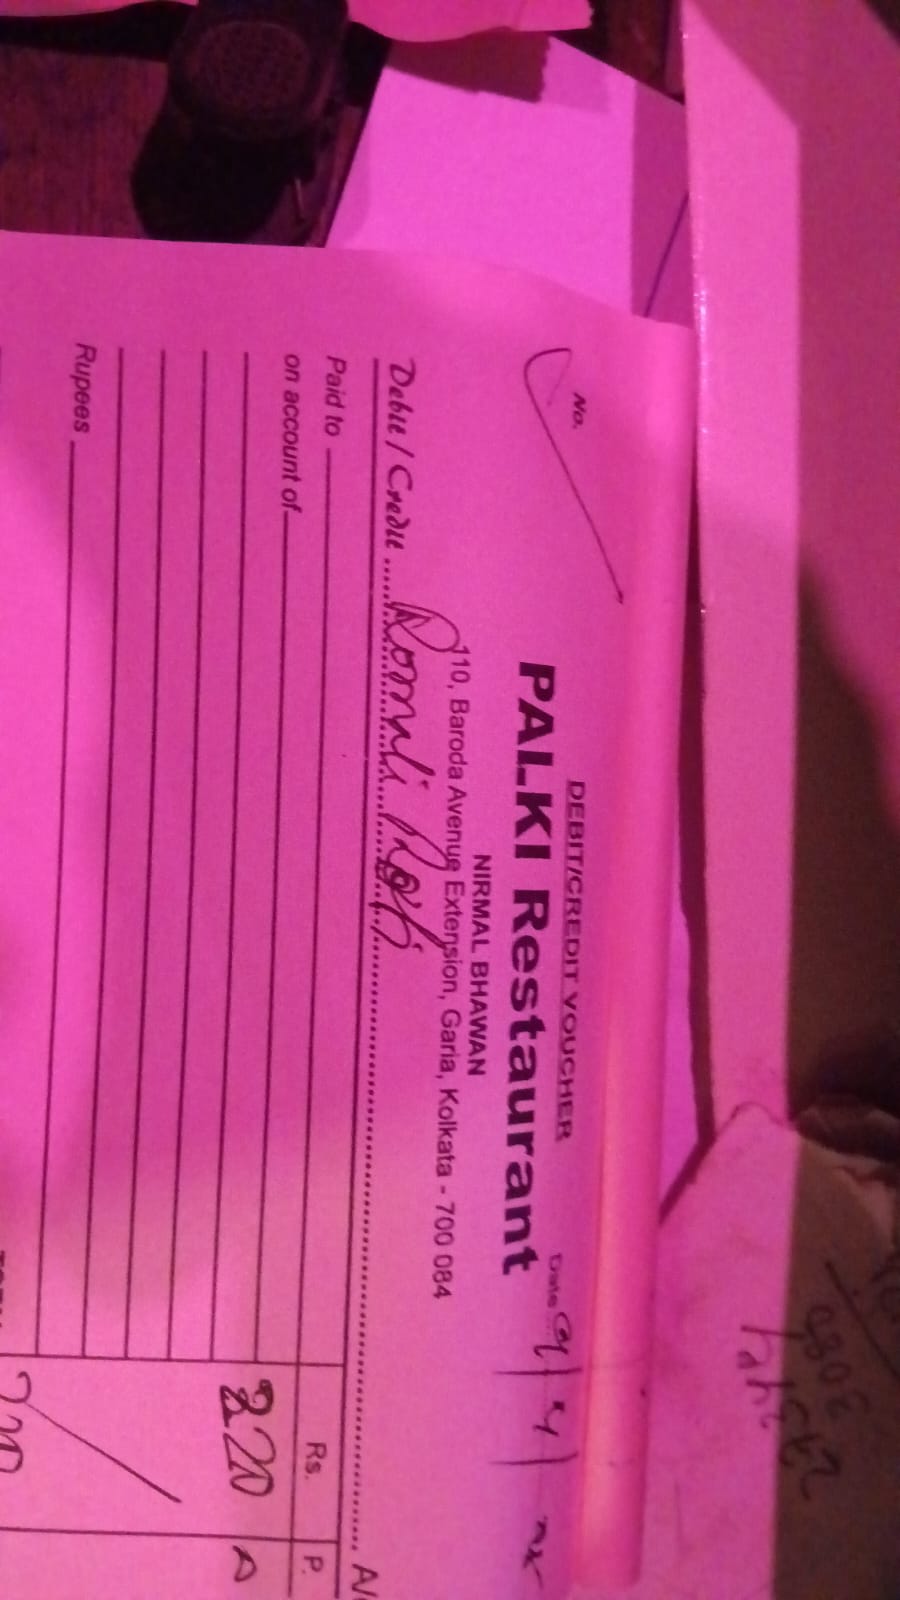 DEBIT/CREDIT VOUCHER
No.
Date
PALKI Restaurant
NIRMAL BHAWAN
110, Baroda Avenue Extension, Garia, Kolkata - 700 084
Debit / Credit Romali Roti A/
Paid to
Rs. P.
on account of
220
Rupees
220